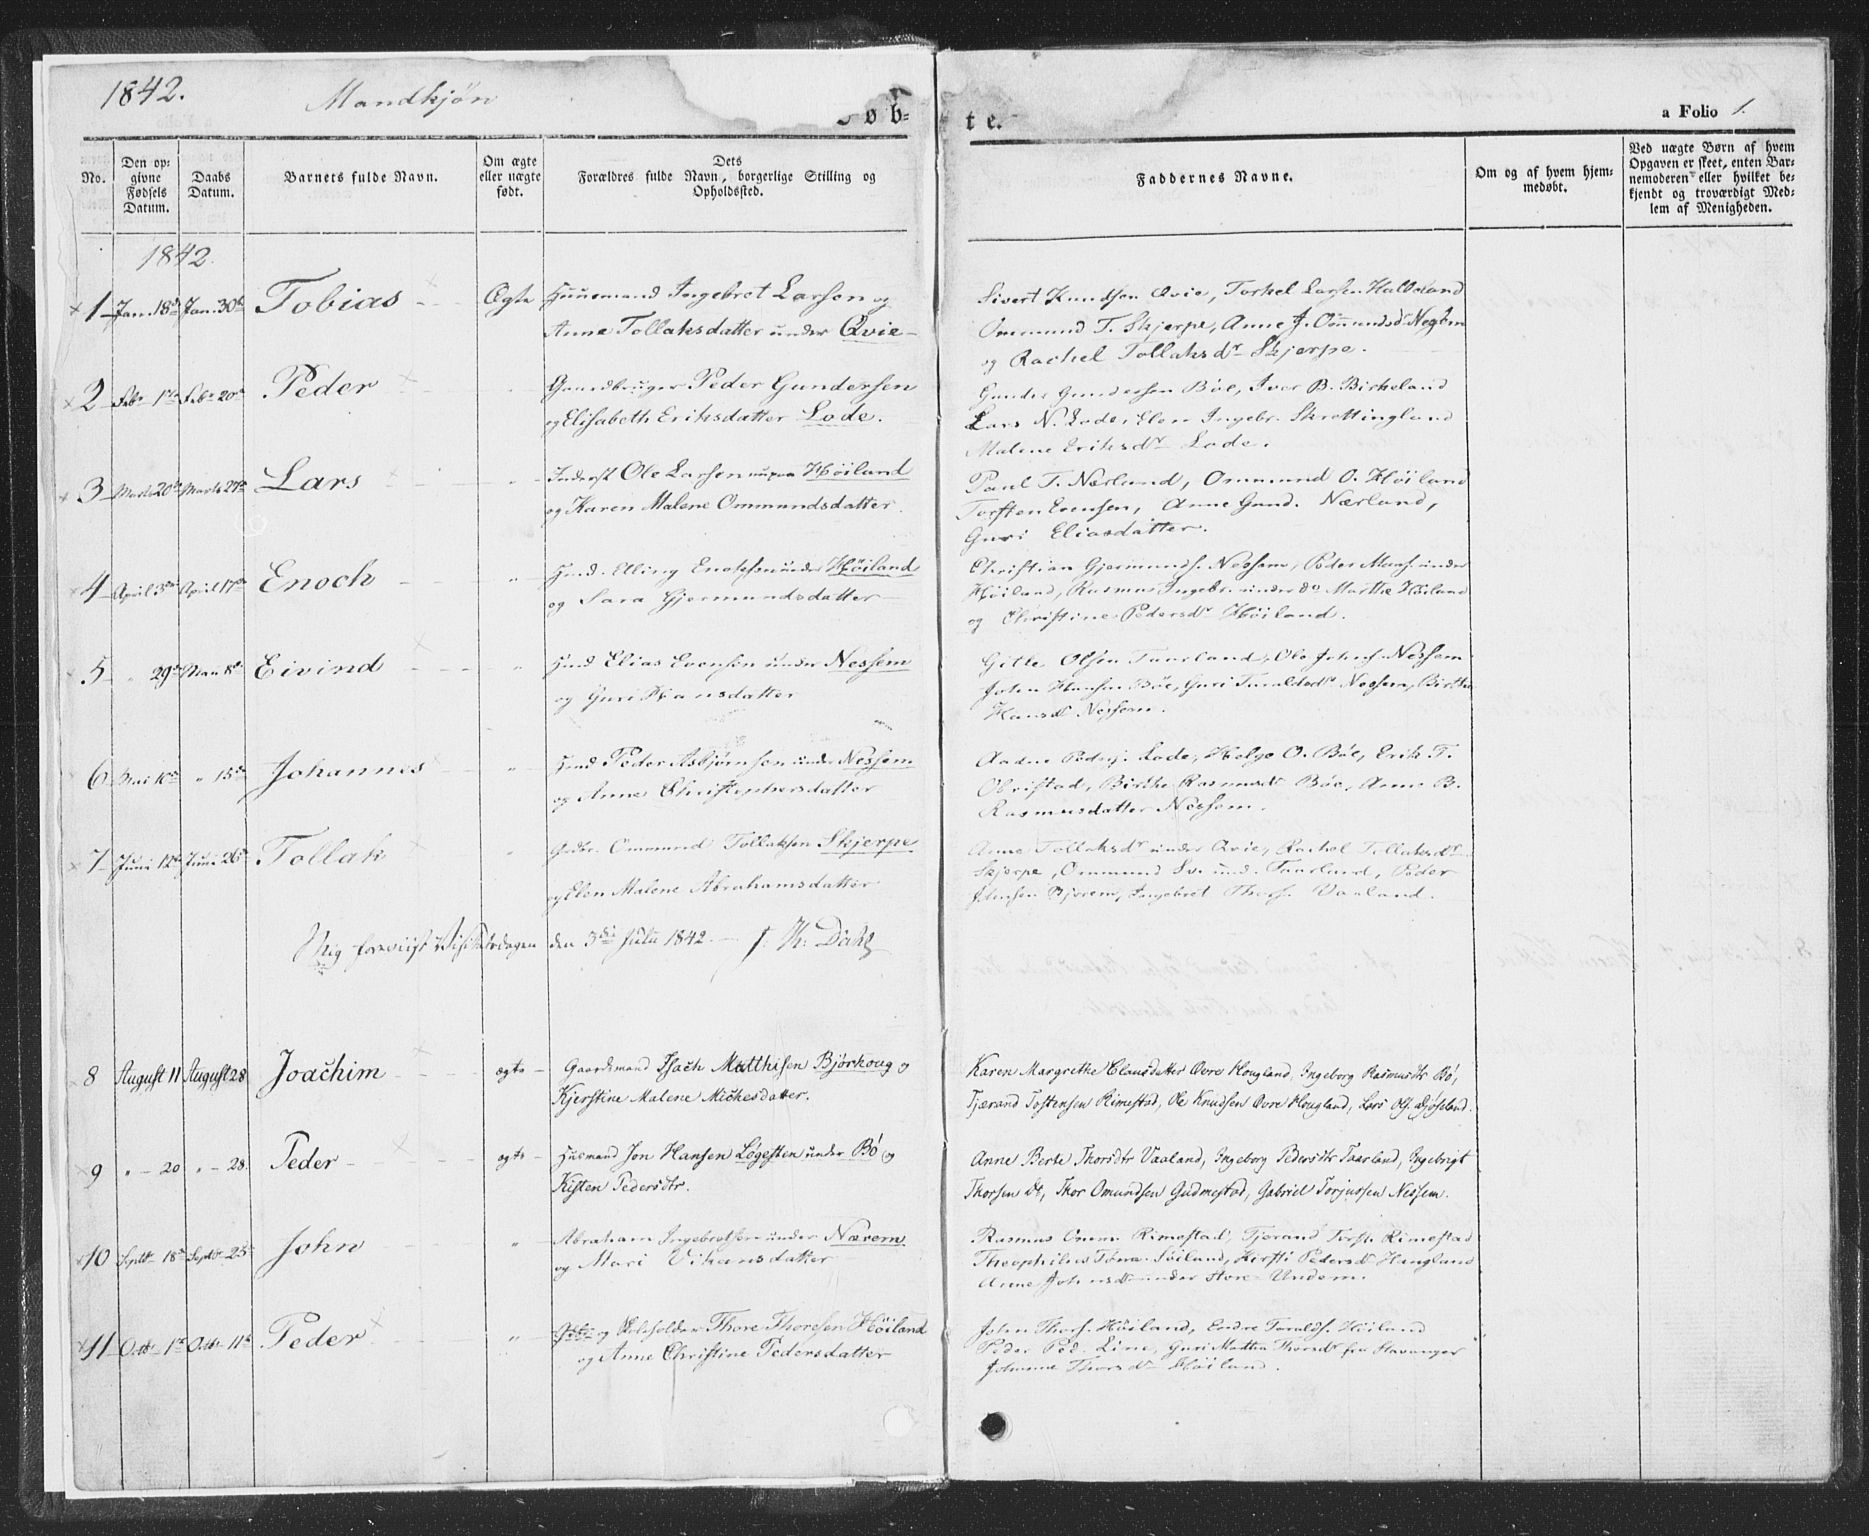 1842. Mandkjøn øb-
te. a Folio 1.
No.
Den op-
givne
Fødsels
Datum.
Daabs
Datum.
Barnets fulde Navn.
Om ægte
eller uægte
født.
Dets
Forældres fulde Navn, borgerlige Stilling og
Opholdssted.
Faddernes Navne.
Om og af hvem hjem-
medøbt.
Ved uægte Børn af hvem
Opgaven er skeet, enten Bar-
nemoderen eller hvilket be-
kjendt og troværdigt Med-
lem af Menigheden.
1842.
1 Jan. 18de Jan. 30te Tobias Ægte Huusmand Ingebret Larsen og
Anne Tollaksdatter under Qvie
Sivert Knudsen Qvie, Torkel Larsen
Ommund T. Skjerpe, Anne J. Ommundsdr
og Rachel Tollaksdr Skjerpe.
2 Febr 1ste Febr 20de Peder " Gaardbruger Peder Gundersen
og Elisabeth Eriksdatter Lode.
Gunder Gundersen Bøe, Iver B. Birkeland
Lars N. Lode, Elen Ingebr. Skrettingland
Malene Eriksdr Lode.
3 Marts 20de Marts 27de Lars " Inderst Ole Larsen Høiland
og Karen Malene Ommundsdatter.
Paul T. Nærland, Ommund O. Høiland
Torsten Evensen, Anne Gund. Nærland,
Guri Eliasdatter.
4 April 3die April 17de Enoch " Husd. Elling Enochsen under Høiland
og Sara Gjermundsdatter
Christian Gjermunds. Nessem, Peder Mons. under
Høiland, Rasmus Ingebr. under do Marthe Høiland
og Christine Pedersdr Høiland.
5 " 29de Mai 8de Eivind " Husd Elias Evensen under Nessem
og Guri Hansdatter
Gitle Olsen Taarland, Ole Johns. Nessem
John Hansen Bøe, Guri Taraldsdr Nessem, Birthe
Hansdr Nessem.
6 Mai 10de " 15de Johannes " Husd Peder Asbjørnsen under Nessem
og Anne Christophersdatter
Aadne Peders. Lode, Helge O. Bøe, Erik T.
Obrestad, Birthe Rasmusdr Bøe, Anne B.
Rasmusdatter Nessem.
7 Juni 12te Juni 26de Tollak " Gdbr. Ommund Tollaksen Skjerpe
og Elen Malene Abrahamsdatter
Anne Tollaksdr under Qvie, Rachel Tollaksdr
Skjerpe, Ommund Sv. und. Taarland, Peder
Johnsen Bjorem, Ingebret Thors. Vaaland.
Mig foreviist Visitatsdagen den 3die Julii 1842.
8 August 11 August 28 Joachim ægte Gaardmand Isach Matthisen Bjørkoug og
Kjerstine Malene Michesdatter.
Karen Margrethe Clausdatter Øvre Hougland, Ingeborg Rasmusdtr Bø,
Tjærand Tostensen Rimestad, Ole Knudsen Øvre Hougland, Lars Ols.
9 " 20 " 28 Peder ægte Husmand Jon Hansen Løgesten under Bø og
Kisten Pedersdtr.
Anne Berte Thorsdtr Vaaland, Ingeborg Pedersdtr Taarland, Ingebrigt
Thorsen do, Thor Omundsen Gudmestad, Gabriel Torjussen Nessem.
10 Septbr 18de Septbr 25de John " Abraham Ingebretsen under Nærem
og Mari Vikansdatter
Rasmus Omm. Rimestad, Tjerand Torst. Rimestad
Theophilus Tønn. Søiland, Kirsti Pedersdr Haugland
Anne Johnsdr under Store-Undem.
11 Octbr 1ste Octbr 11te Peder " og Skoleholder Thore Thoresen Høiland
og Anne Christine Pedersdatter
John Thors. Høiland, Endre Taralds. Høiland
Peder Ped. Line, Guri Martha Thorsdr fra Stavanger
Johanne Thorsdr Høiland.